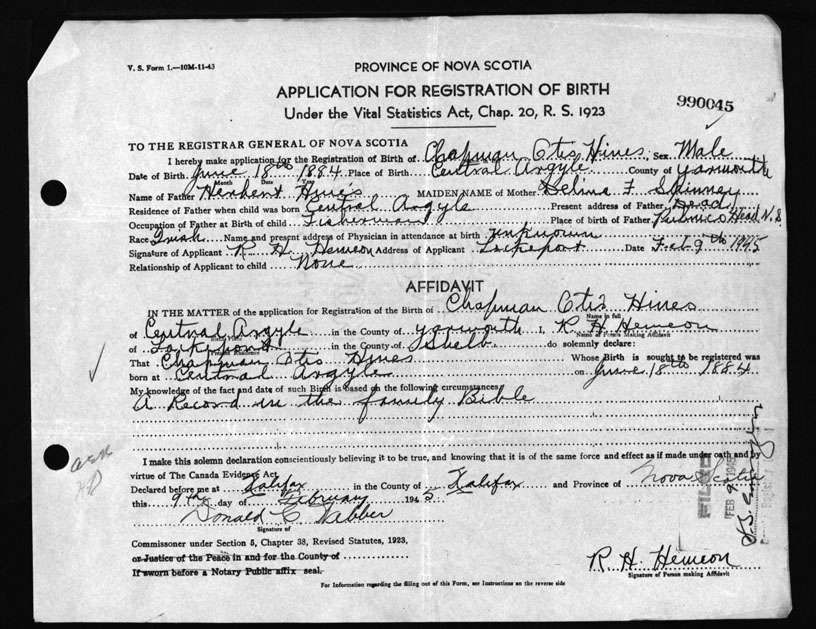 V. S. Form 1.—10M-11-43
PROVINCE OF NOVA SCOTIA
APPLICATION FOR REGISTRATION OF BIRTH
990045
Under the Vital Statistics Act, Chap. 20, R. S. 1923
TO THE REGISTRAR GENERAL OF NOVA SCOTIA
I hereby make application for the Registration of Birth of Chapman Otis Hines Sex Male
Date of Birth June 18th 1884 Place of Birth Central Argyle County of Yarmouth
Month Date
Name of Father Herbert Hines MAIDEN NAME of Mother Selina F Skinney
Residence of Father when child was born Central Argyle Present address of Father Dead
Occupation of Father at Birth of child Fisherman Place of Birth of Father Pubnico Head N.S.
Race Irish Name and present address of Physician in attendance at birth unknown
Signature of Applicant R. H. Hemeon Address of Applicant Lockeport Date Feb 9th 1945
Relationship of Applicant to child None
AFFIDAVIT
IN THE MATTER of the application for Registration of the Birth of Chapman Otis Hines
Name in full
of Central Argyle in the County of Yarmouth I, R H Hemeon
Name of Person Making Affidavit
of Lockeport in the County of Shelb do solemnly declare:
Present Residence
That Chapman Otis Hines Whose Birth is sought to be registered was
born at Central Argyle on June 18th 1884
My knowledge of the fact and date of such Birth is based on the following circumstances
A Record in the family Bible
I make this solemn declaration conscientiously believing it to be true, and knowing that it is of the same force and effect as if made under oath and by
virtue of The Canada Evidence Act.
Declared before me at Halifax in the County of Halifax and Province of Nova Scotia
this 9th day of February 1945
Donald C Nabber
Signature of
Commissoner under Section 5, Chapter 38, Revised Statutes, 1923,
or Justice of the Peace in and for the County of
If sworn before a Notary Public affix seal.
FILED
FEB 9 1945
R. H. Hemeon
Signature of Person making Affidavit
For Information regarding the filling out of this Form, see Instructions on the reverse side